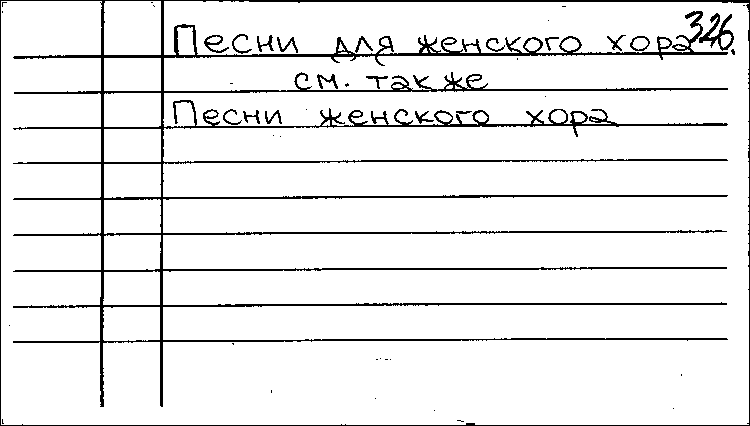 326.
Песни для женского хора
см. также
Песни женского хора